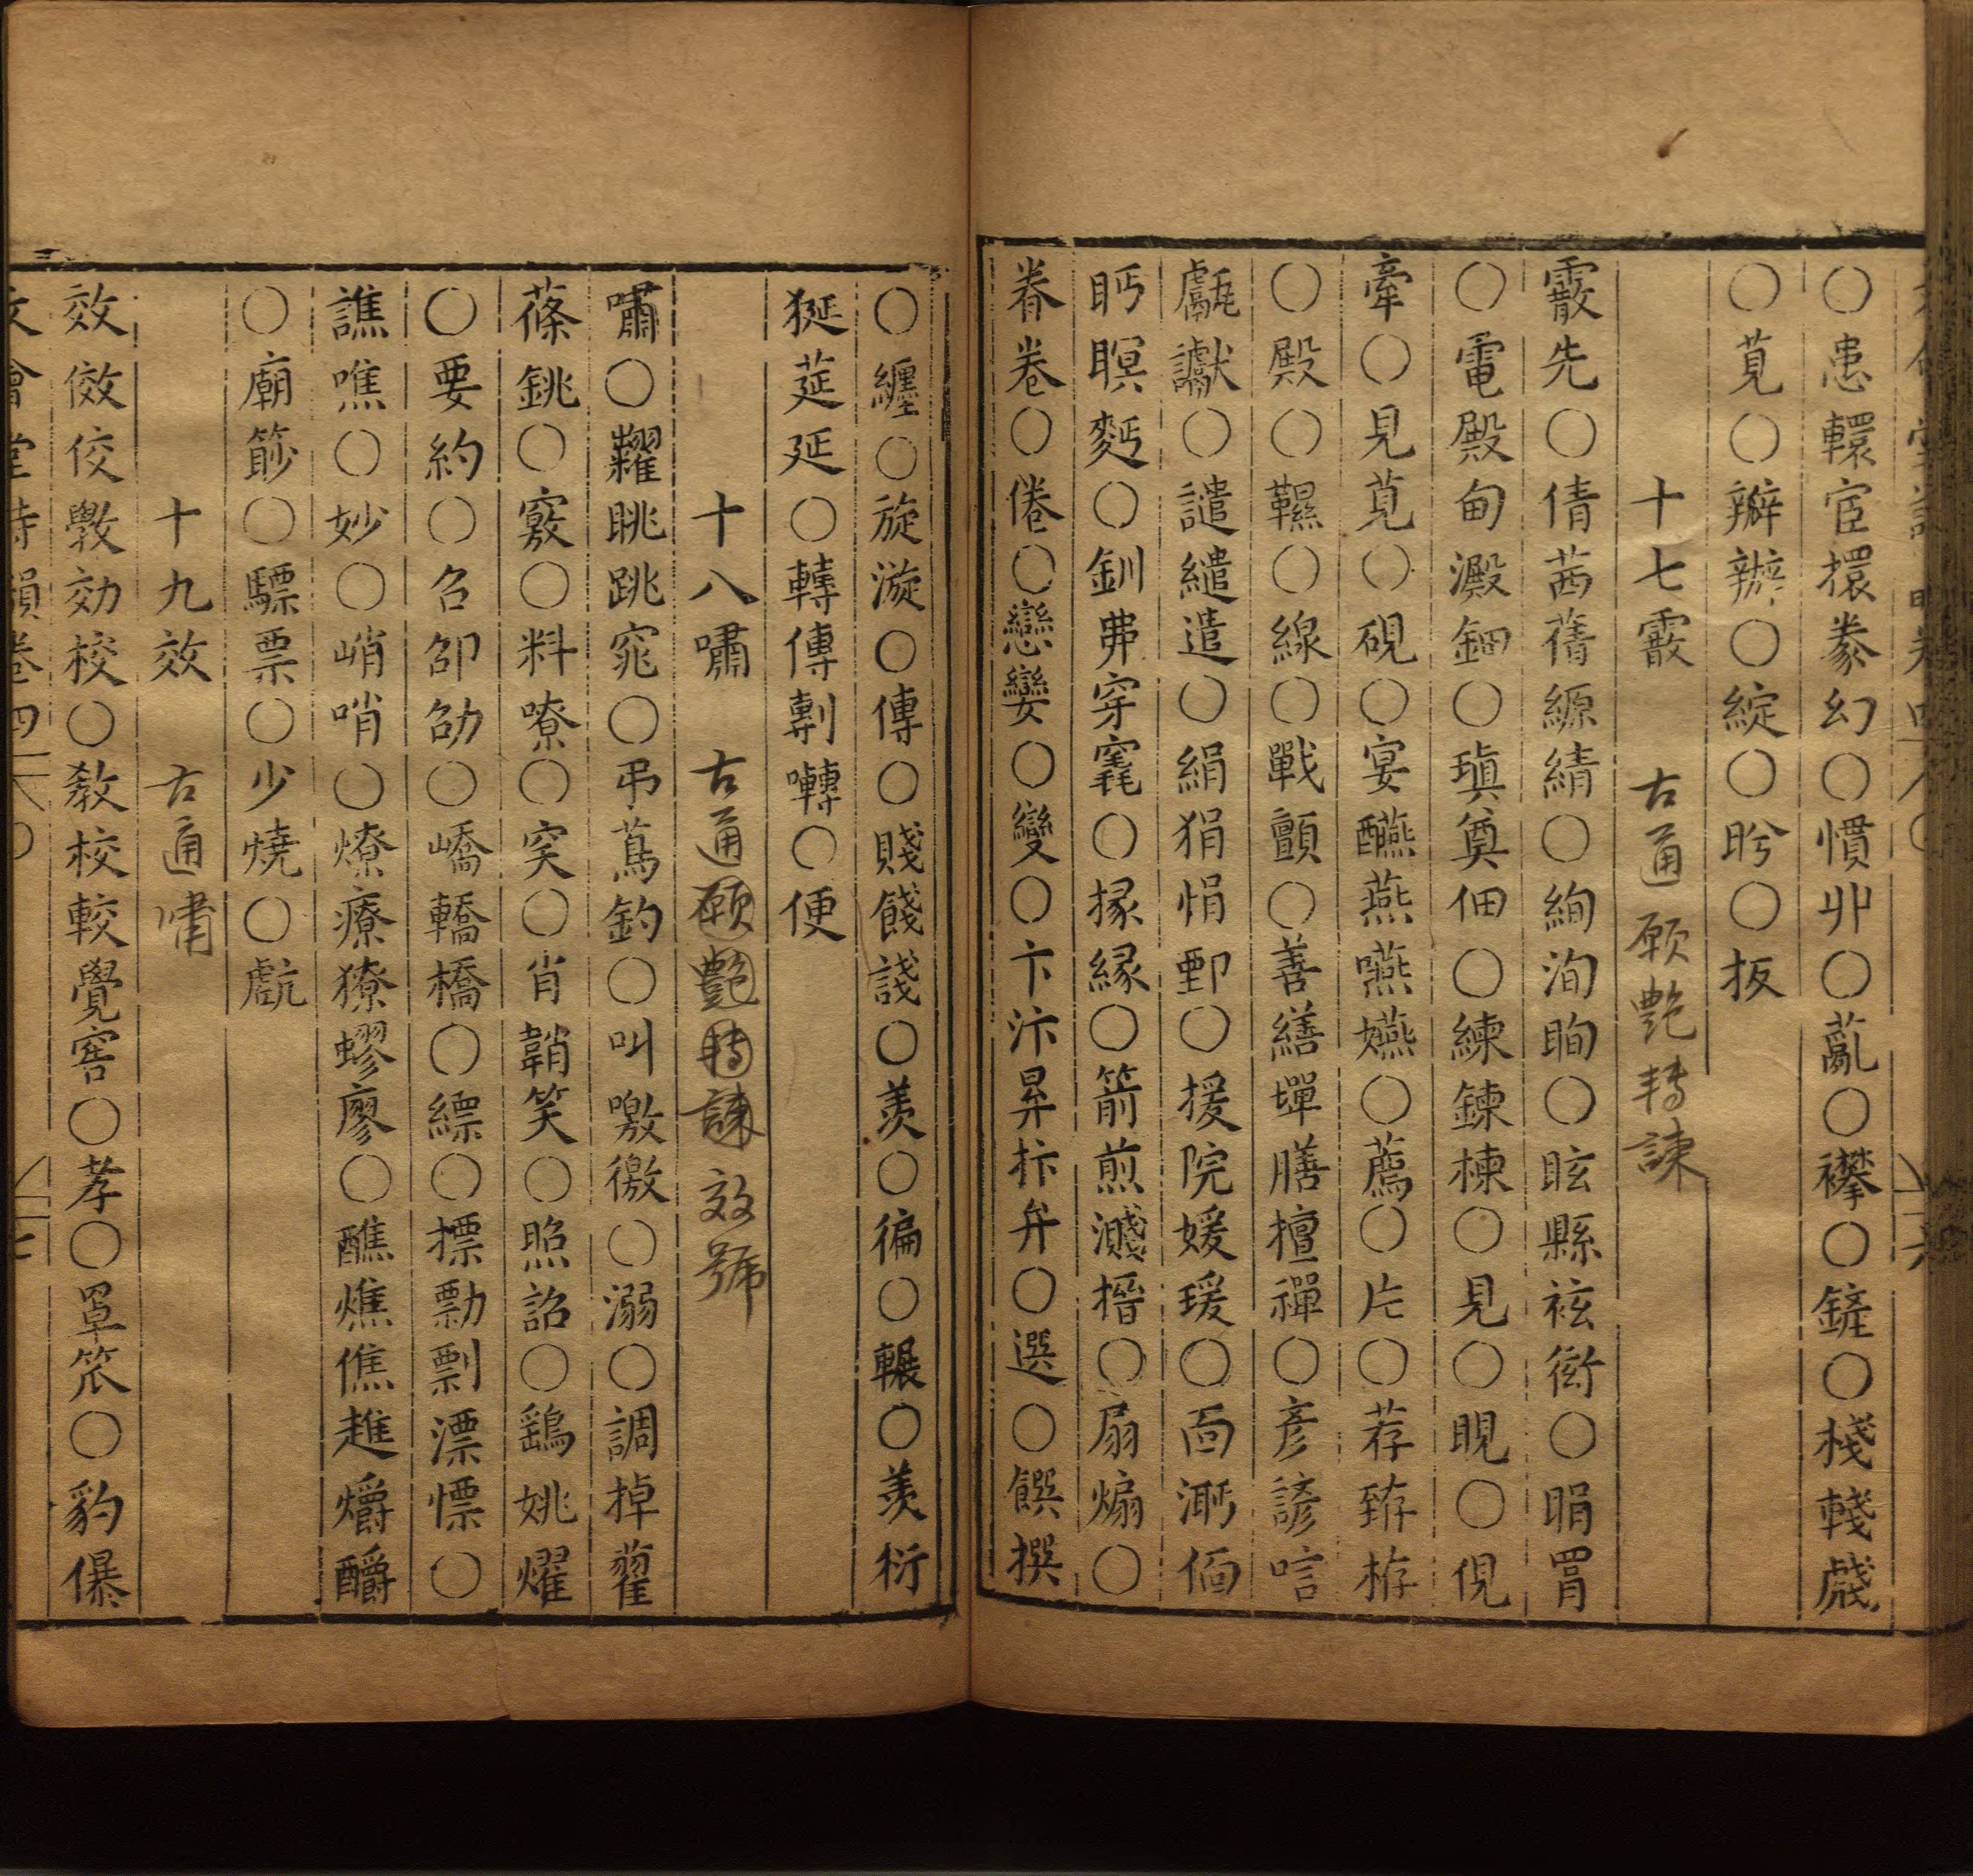 ○患轘宦擐豢幻○慣丱○薍○襻○鏟○棧輚虥
○莧○瓣辦○綻○盻○扳
十七霰 古通願艷轉諫
霰先○倩茜蒨縓綪○絢洵眴○眩縣袨衒○睊罥
○電殿甸澱鈿○瑱奠佃○練鍊楝○見○晛○俔
牽○見莧○硯○宴醼燕嚥嬿○薦○片○荐臶栫
○殿○䩤○線○戰顫○善繕墠膳擅禪○彥諺唁
甗讞○譴繾遣○絹狷悁鄄○援院媛瑗○面湎偭
眄瞑麪○釧弗穿竁○掾緣○箭煎濺搢○扇煽○
眷卷○倦○戀孌○變○卞汴昪抃弁○選○饌撰
○纏○旋漩○傳○賤餞諓○羡○徧○輾○羨衍
狿莚延○轉傳剸囀○便
十八嘯 古通願艷轉諫效號
嘯○糶眺跳窕○弔蔦釣○叫噭徼○溺○調掉藋
蓧銚○竅○料嘹○窔○肖鞘笑○照詔○鷂姚燿
○要約○召邵劭○嶠轎橋○縹○摽勡剽漂慓○
譙噍○妙○峭哨○燎療獠蟉廖○醮燋僬趭爝釂
○廟篎○驃票○少燒○䖔
十九效 古通嘯
效傚佼斆効校○敎校較覺窖○孝○罩笊○豹儤